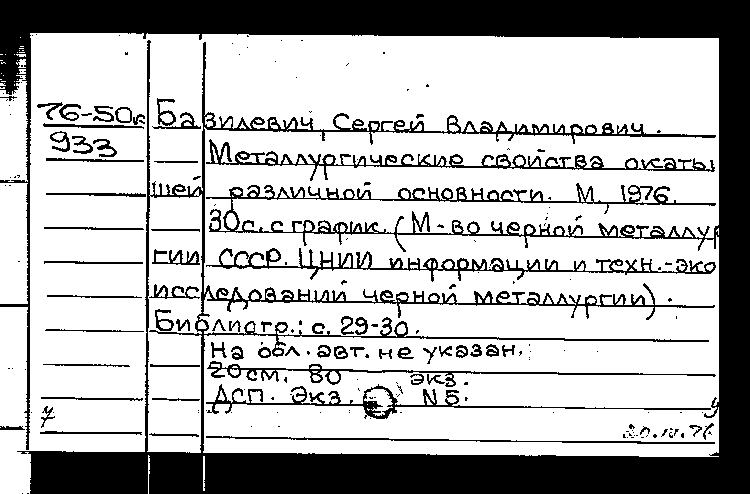 76-50к Базилевич, Сергей Владимирович.
933 Металлургические свойства окаты
шей различной основности. М., 1976.
30с. с график. (М-во черной металлур
гии СССР. ЦНИИ информации и техн.-эко
исследований черной металлургии).
Библиогр.: с. 29-30.
На обл. авт. не указан.
20см. 80 экз.
ДСП. Экз. N5.
у